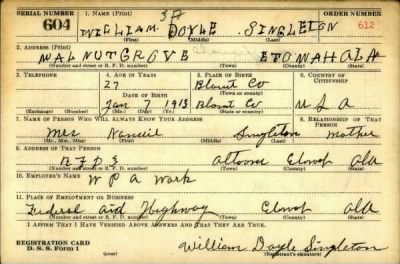 SERIAL NUMBER 1. NAME (Print) ORDER NUMBER
604 WILLIAM DOYLE SINGLETON 612
(First) (Middle) (Last)
2. ADDRESS (Print)
WALNUT GROVE ETOWAH ALA
(Number and street or R. F. D. number) (Town) (County) (State)
3. TELEPHONE 4. AGE IN YEARS 5. PLACE OF BIRTH 6. COUNTRY OF CITIZENSHIP
27 Blount Co
(Town or county)
DATE OF BIRTH
Jan 7 1913 Blount Co U S A
(Exchange) (Number) (Mo.) (Day) (Yr.) (State or country)
7. NAME OF PERSON WHO WILL ALWAYS KNOW YOUR ADDRESS 8. RELATIONSHIP OF THAT PERSON
Mrs Nannie Singleton Mother
(Mr., Mrs., Miss) (First) (Middle) (Last)
9. ADDRESS OF THAT PERSON
R F D 3 Altoona Ala
(Number and street or R. F. D. number) (Town) (County) (State)
10. EMPLOYER'S NAME
W P A Work
11. PLACE OF EMPLOYMENT OR BUSINESS
Federal aid Highway Ala
(Number and street or R. F. D. number) (Town) (County) (State)
I AFFIRM THAT I HAVE VERIFIED ABOVE ANSWERS AND THAT THEY ARE TRUE.
REGISTRATION CARD
D. S. S. Form 1 William Doyle Singleton
(Registrant's signature)